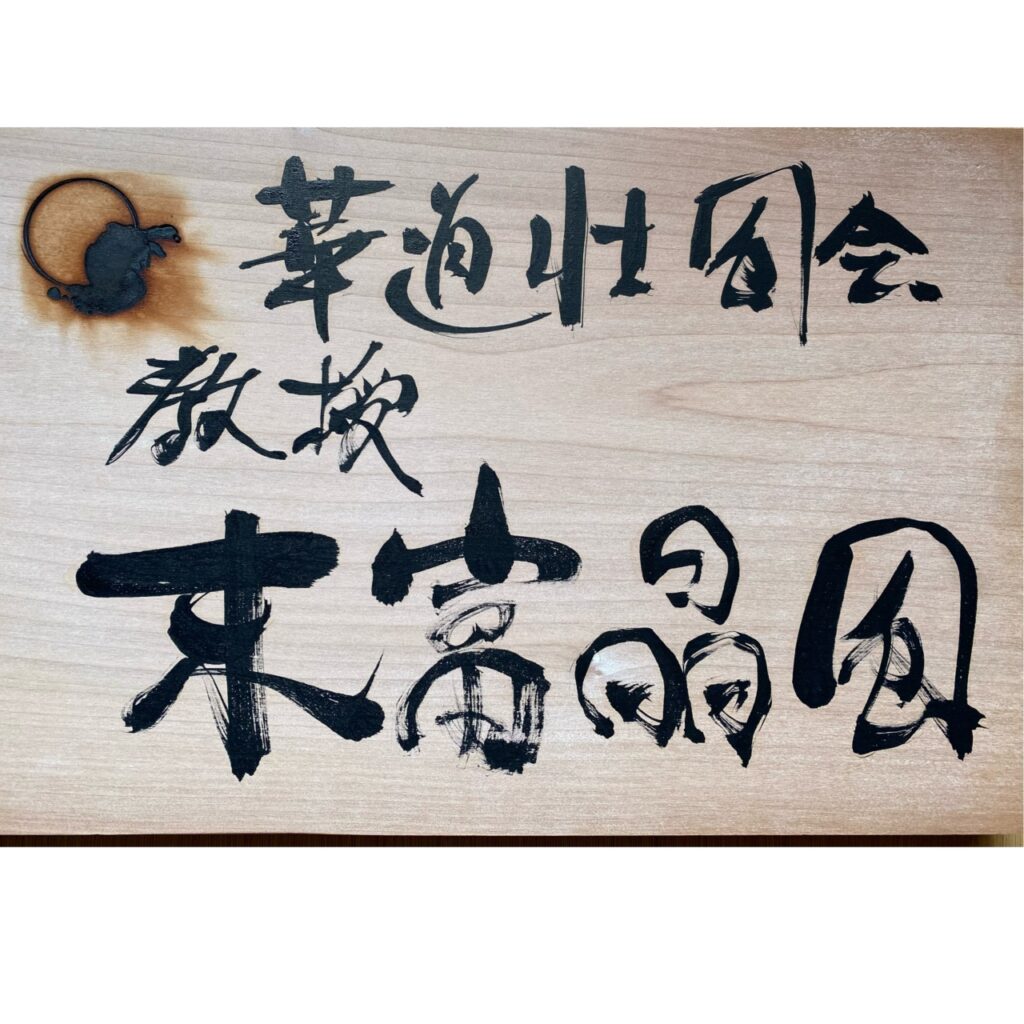 華道壮園会
教授
末富晶園